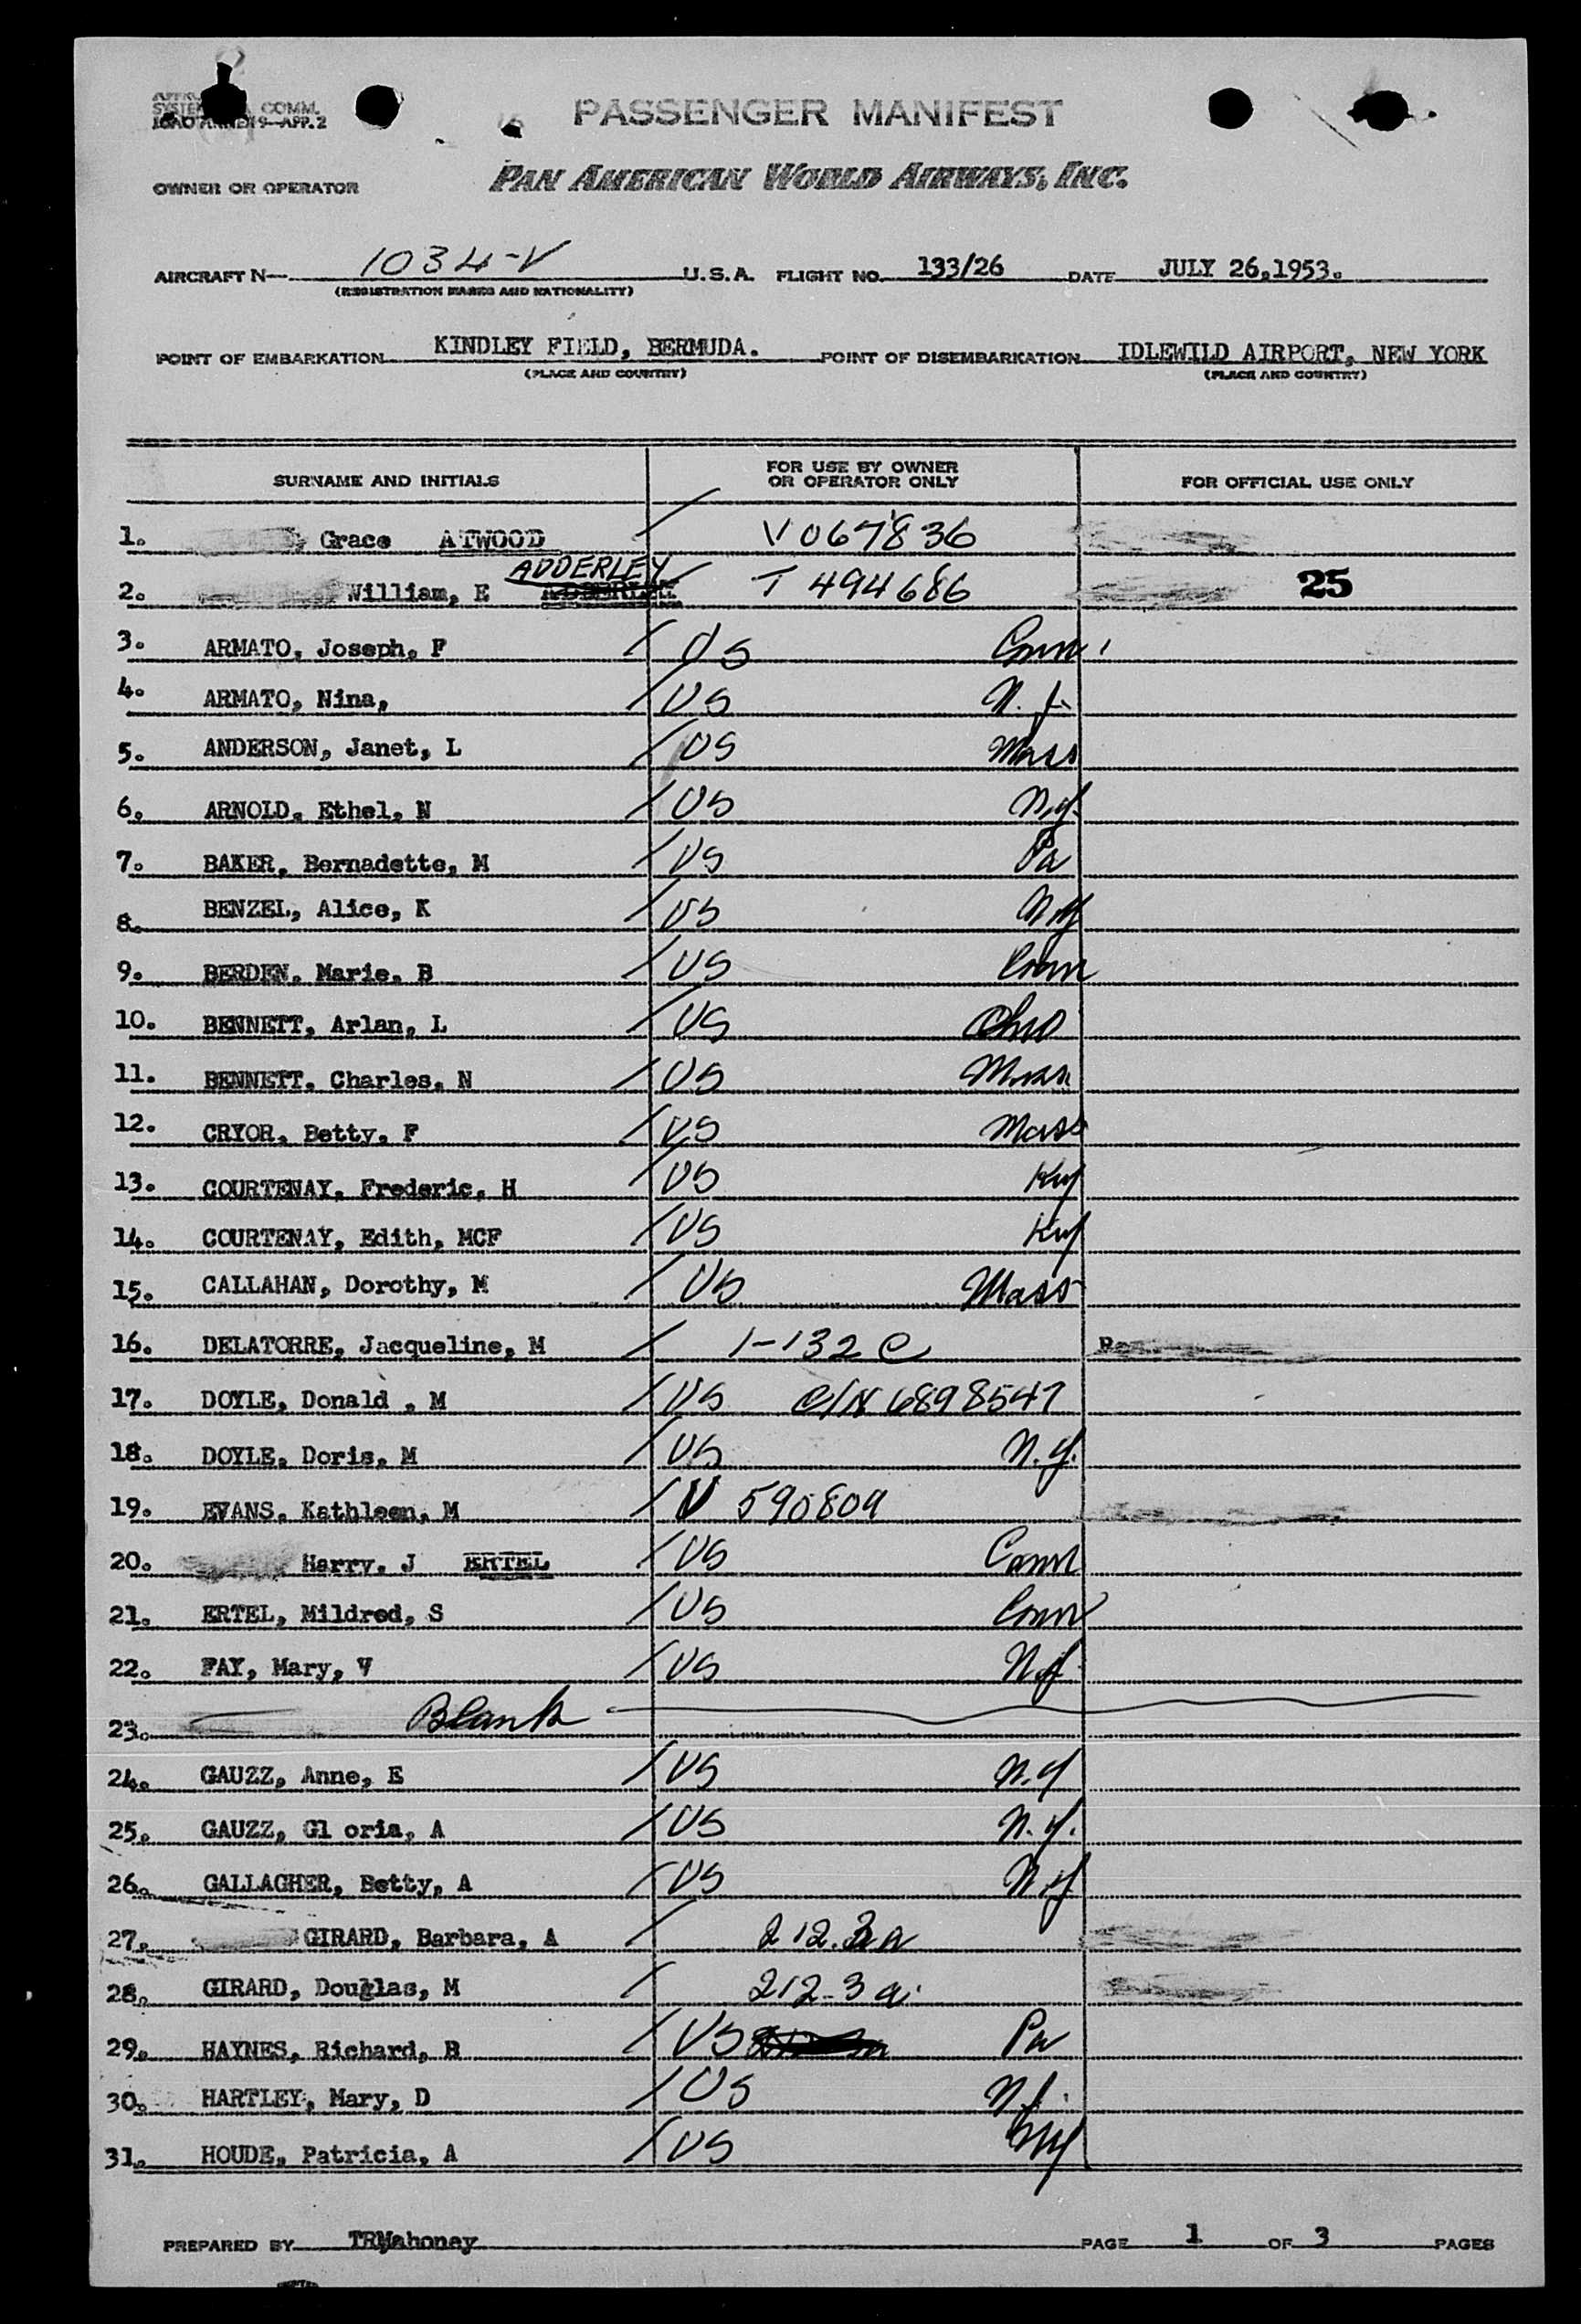 COMM.
9-APP.2
PASSENGER MANIFEST
OWNER OR OPERATOR PAN AMERICAN WORLD AIRWAYS, INC.
AIRCRAFT N- 1034-V U.S.A. FLIGHT NO. 133/26 DATE JULY 26,1953.
(REGISTRATION MARKS AND NATIONALITY)
POINT OF EMBARKATION KINDLEY FIELD, BERMUDA. POINT OF DISEMBARKATION IDLEWILD AIRPORT, NEW YORK
(PLACE AND COUNTRY) (PLACE AND COUNTRY)
SURNAME AND INITIALS FOR USE BY OWNER OR OPERATOR ONLY FOR OFFICIAL USE ONLY
1. Grace ATWOOD / V 067836
ADDERLEY
2. William, E / T 494686 25
3. ARMATO, Joseph, F / US Conn
4. ARMATO, Nina, / US N.J.
5. ANDERSON, Janet, L / US Mass
6. ARNOLD, Ethel, N / US N.Y.
7. BAKER, Bernadette, M / US Pa
8. BENZEL, Alice, K / US N.Y
9. BERDEN, Marie, B / US Conn
10. BENNETT, Arlan, L / US Ohio
11. BENNETT, Charles, N / US Mass
12. CRYOR, Betty, F / US Mass
13. COURTENAY, Frederic, H / US Ky
14. COURTENAY, Edith, MCF / US Ky
15. CALLAHAN, Dorothy, M / US Mass
16. DELATORRE, Jacqueline, M / 1-132 C
17. DOYLE, Donald , M / US C/N 6898547
18. DOYLE, Doris, M / US N.Y.
19. EVANS, Kathleen, M / V 590809
20. Harry, J ERTEL / US Conn
21. ERTEL, Mildred, S / US Conn
22. FAY, Mary, V / US N.Y
23. Blank
24. GAUZZ, Anne, E / US N.Y
25. GAUZZ, Gl oria, A / US N.Y.
26. GALLAGHER, Betty, A / US N.Y
27. GIRARD, Barbara, A / 212.3a
28. GIRARD, Douglas, M / 212-3a
29. HAYNES, Richard, B / US Pa
30. HARTLEY, Mary, D / US N.J.
31. HOUDE, Patricia, A / US NY
PREPARED BY TRMahoney PAGE 1 OF 3 PAGES